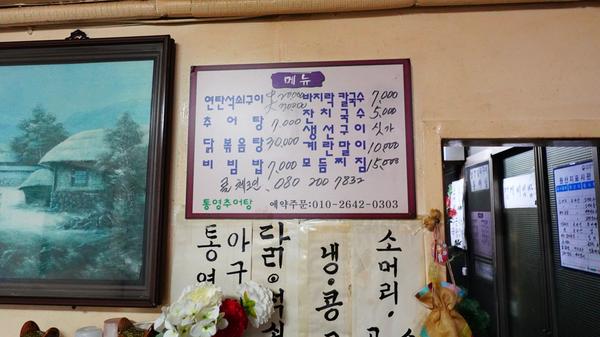 메뉴
연탄석쇠구이 大 20,000
바지락 칼국수 7,000
추어탕 7,000
잔치국수 5,000
생선구이 싯가
닭볶음탕 30,000
계란말이 10,000
비빔밥 7,000
모듬찌짐 15,000
080 200 7832
통영추어탕 예약주문:010-2642-0303
통영
아구
닭
냉·콩
소머리